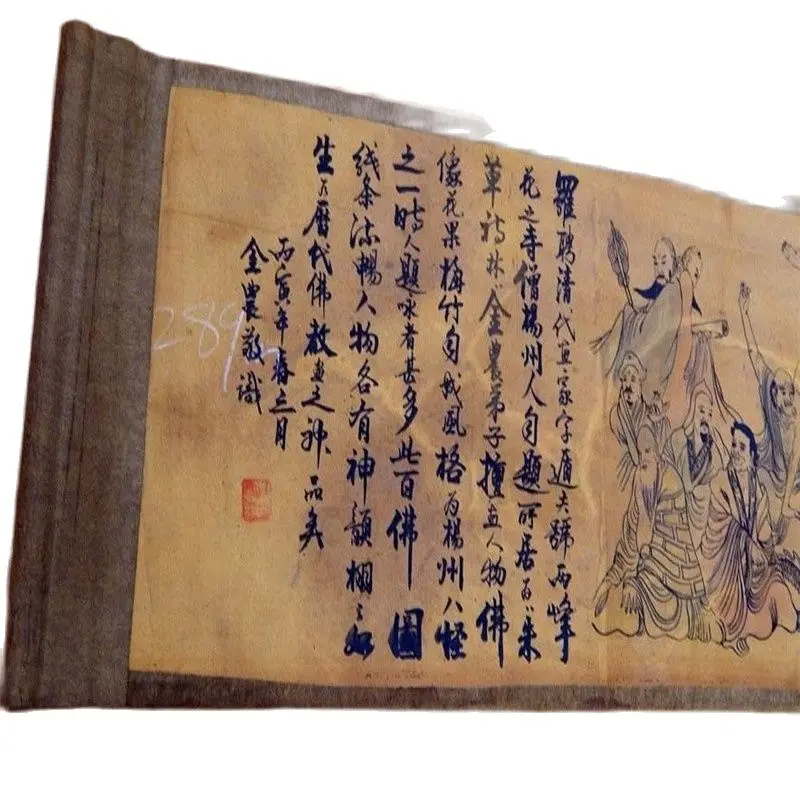 羅聘清代画家字遁夫號两峰
花之寺僧楊州人自題所居曰朱
草詩林金農弟子擅画人物佛
像花果梅竹自成風格为楊州八怪
之一時人題咏者甚多此百佛圖
线条流暢人物各有神韻栩々如
生乃歷代佛教画之神品矣
丙寅年春三月
金農敬識
289